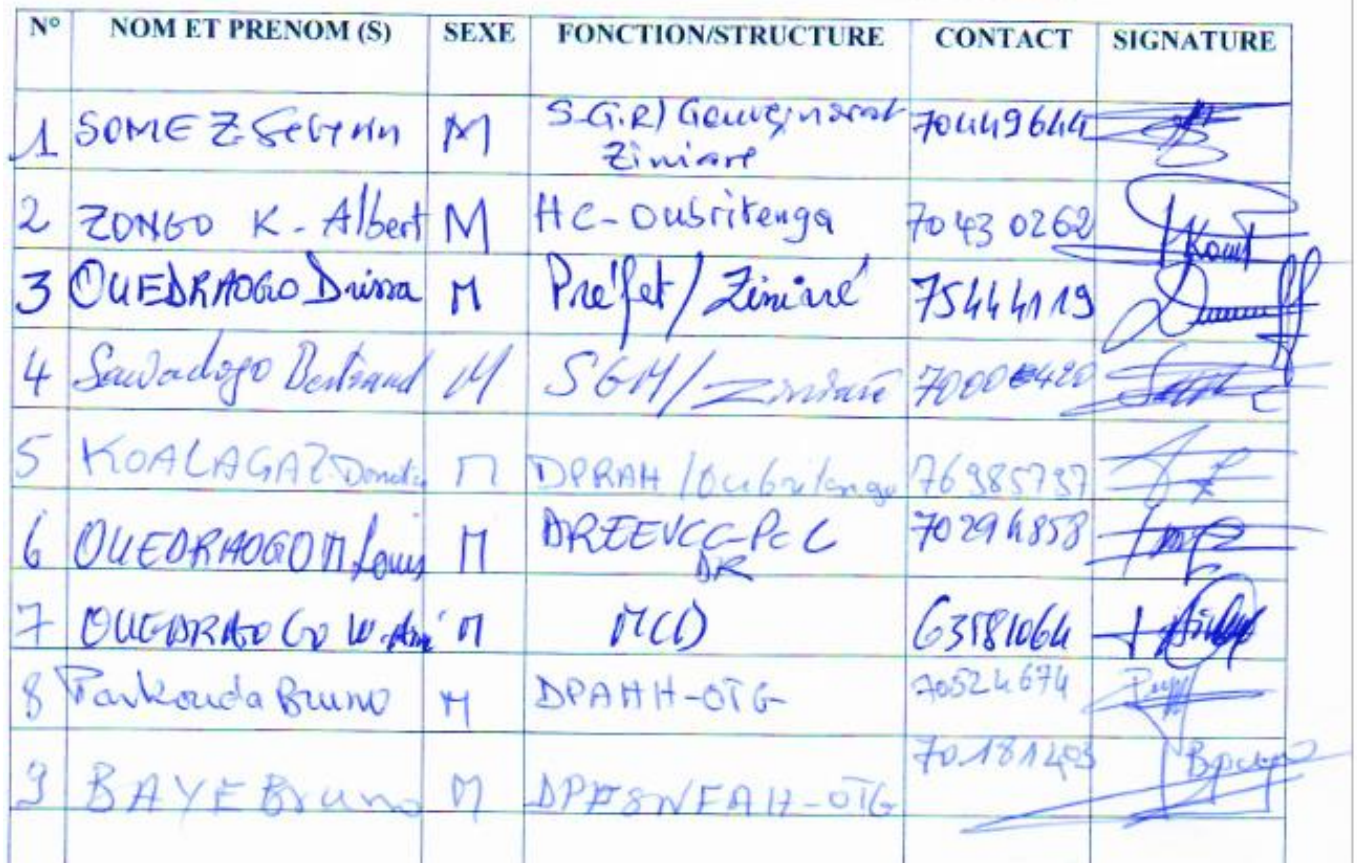 N° NOM ET PRENOM (S) SEXE FONCTION/STRUCTURE CONTACT SIGNATURE
1 SOME Z Severin M S.G.R/ Gouvernorat Ziniare 70449644
2 ZONGO K. Albert M HC-Oubritenga 70430262
3 OUEDRAOGO Drissa M Préfet/Ziniaré 75444119
4 Sawadogo Bertrand M SGM/Ziniaré
5 KOALAGA Z. M DPRAH/Oubritenga 76985737
6 OUEDRAOGO M Louis M 70294858
7 OUEDRAOGO M MCD 63581064
8 Parkouda Bruno M DPAHH-OTG 70524674
9 BAYE Bruno M 70181203